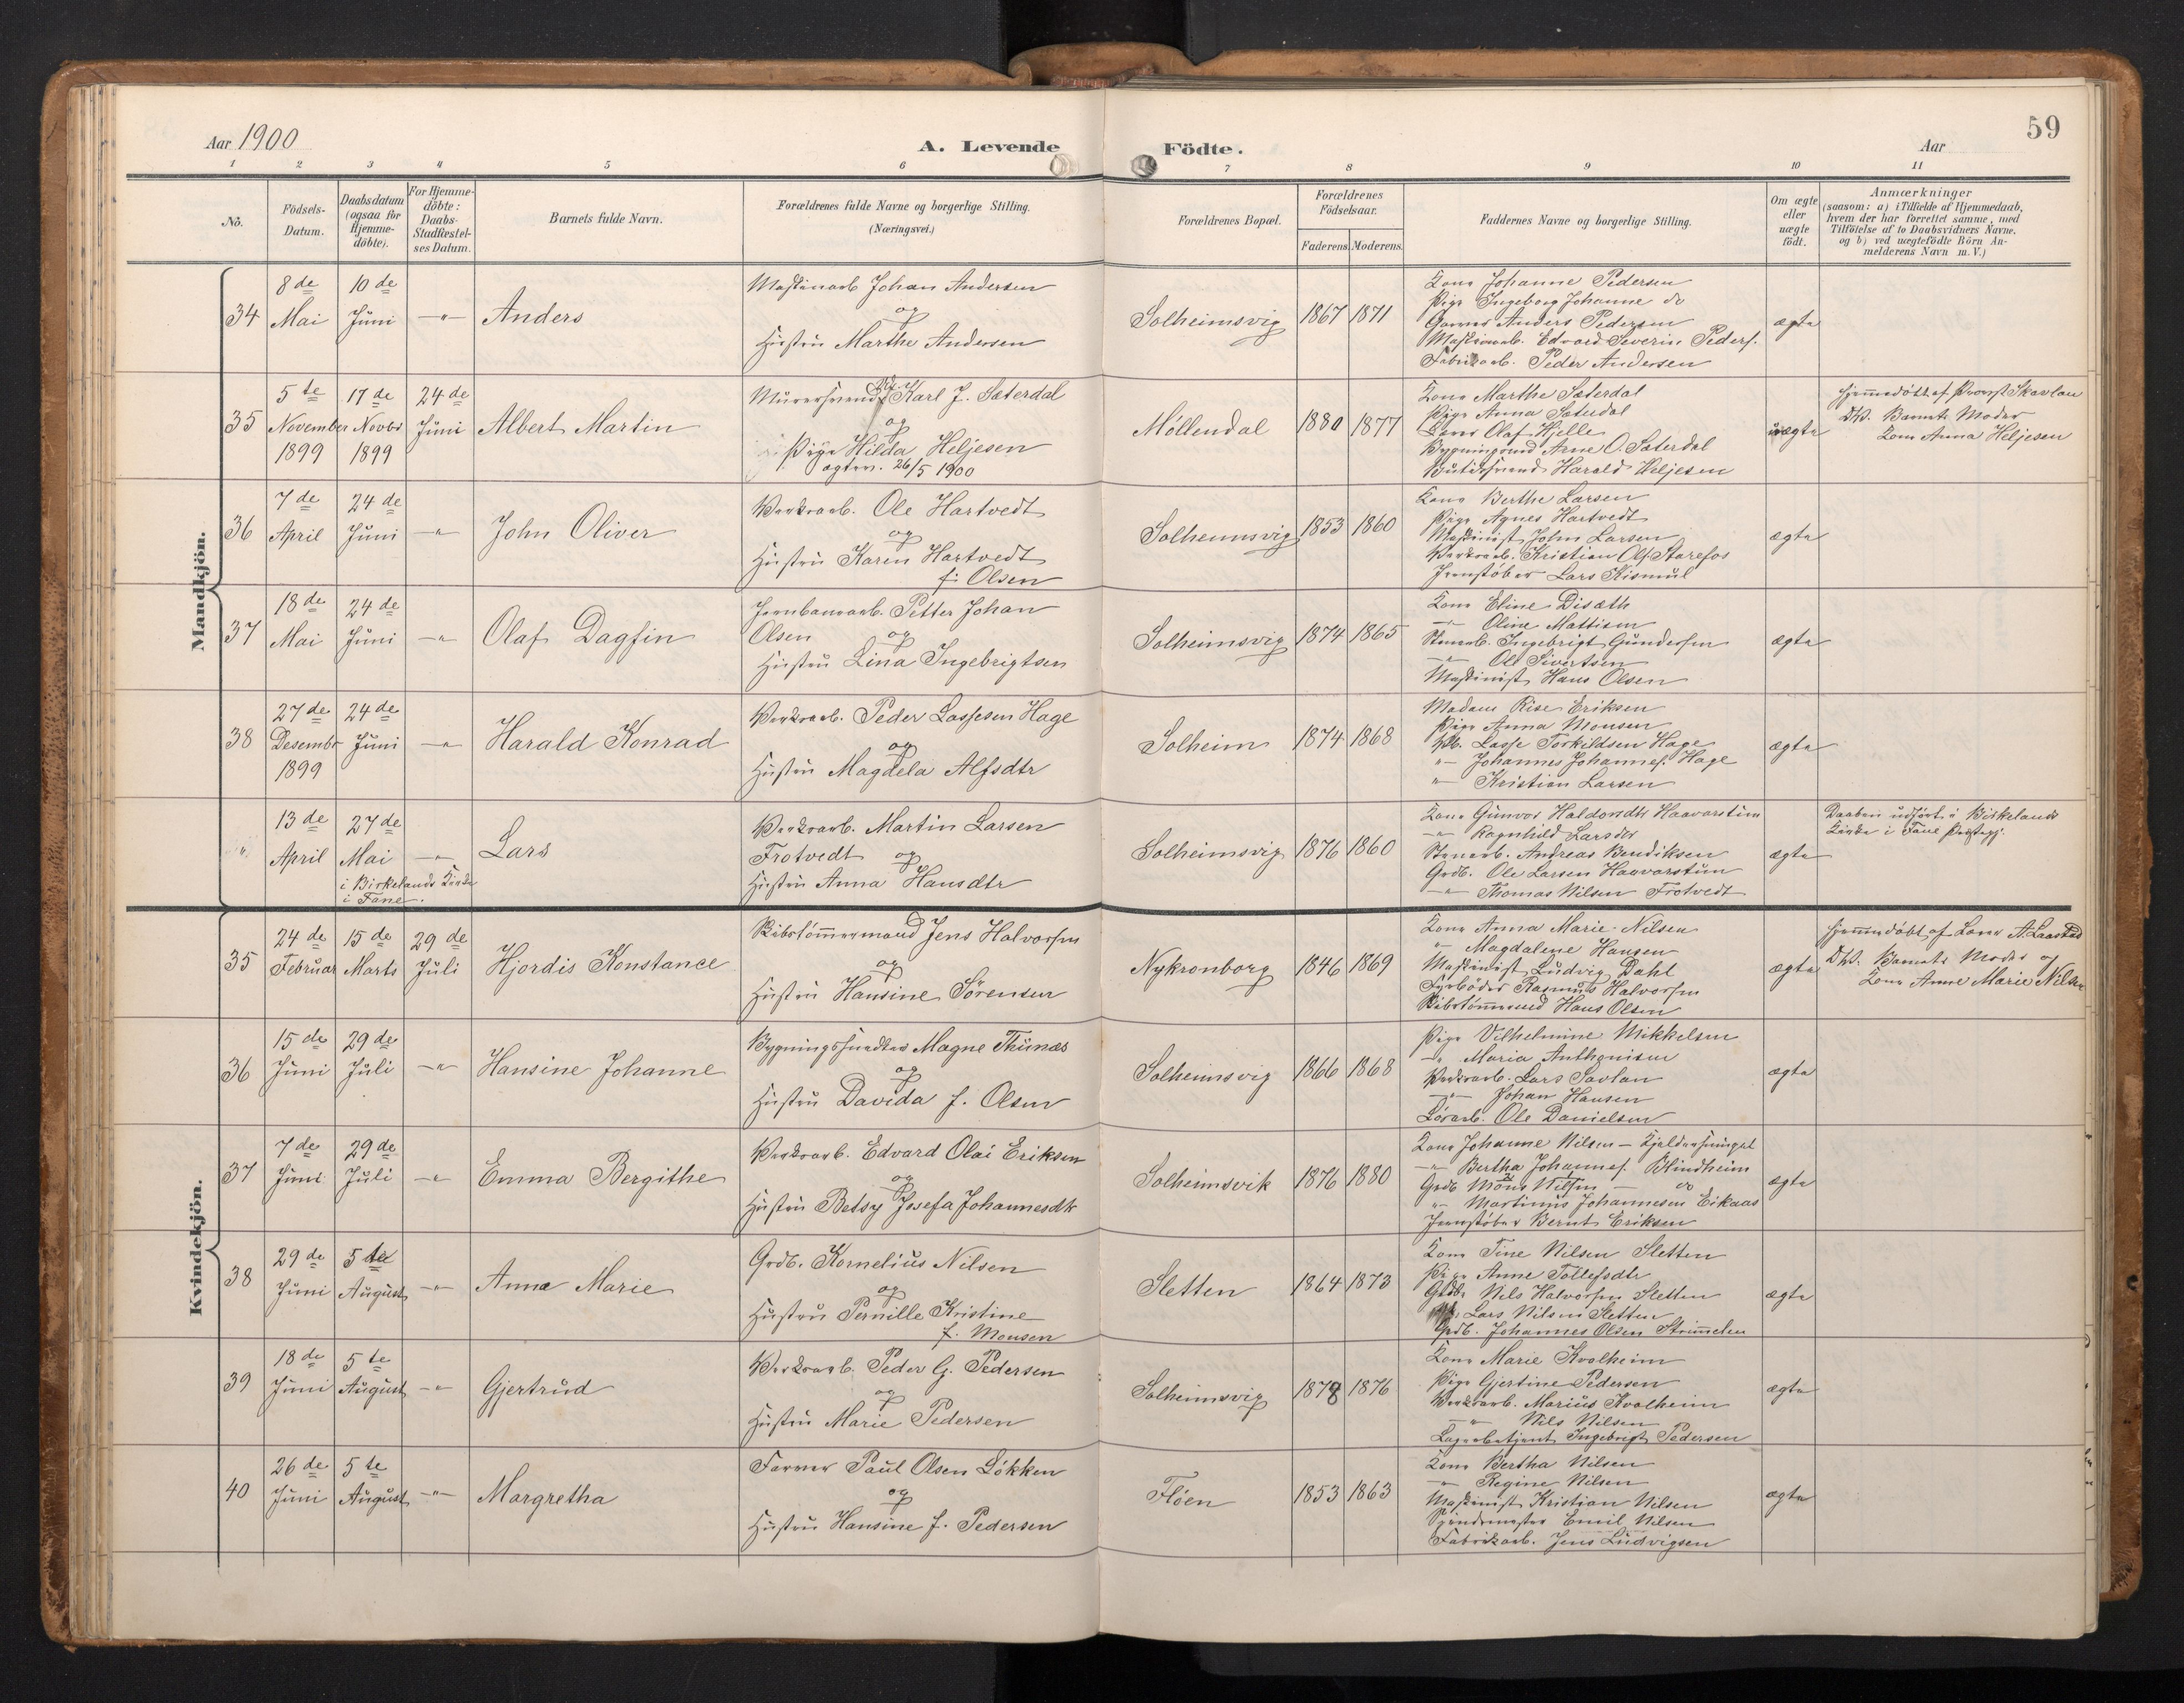 Aar 1900
A. Levende
Födte.
Aar
59
1 2 3 4 5 6 7 8 9 10 11
No.
Födsels-
Datum.
Daabsdatum
(ogsaa for
Hjemme-
döbte).
For Hjemme-
döbte:
Daabs-
Stadfæstel-
ses Datum.
Barnets fulde Navn.
Forældrenes fulde Navne og borgerlige Stilling.
(Næringsvei.)
Forældrenes Bopæl.
Forældrenes
Födselsaar.
Faderens. Moderens.
Faddernes Navne og borgerlige Stilling.
Om ægte
eller
uægte
födt.
Anmærkninger
(saasom: a) i Tilfælde af Hjemmedaab,
hvem der har forrettet samme, med
Tilföielse af to Daabsvidners Navne.
og b) ved uægtefödte Börn An-
melderens Navn m. V.)
Mandkjön.
34
8 de
Mai
10 de
Juni
—"—
Anders
Maskinarb. Johan Andersen
og
Hustru Marthe Andersen
Solheimsvig
1867
1871
Kone Johanne Pedersen
Pige Ingeborg Johanne do
Anders Pedersen
Maskinarb. Edvard Severin Peders.
Fabrikarb. Peder Andersen
ægte
35
5 te
November
1899
17 de
Novbr
1899
24 de
Juni
Albert Martin
Murersvend Karl J. Sæterdal
og
Pige Hilda Heljesen
ægtev. 26/5 1900
Møllendal
1880
1877
Kone Marthe Sæterdal
Pige Anna Sæterdal
Kone Olaf Hjelle
Arne O. Sæterdal
Harald Heljesen
uægte
Hjemmedøbt af Provst Skavlan
Dv. Barnets Moder
Kone Anna Heljesen
36
7 de
April
24 de
Juni
—"—
John Oliver
Værksarb. Ole Hartvedt
og
Hustru Karen Hartvedt
f. Olsen
Solheimsvig
1853
1860
Kone Berthe Larsen
Pige Agnes Hartvedt
Maskinist John Larsen
Værksarb. Kristian Ols. Storefos
Jernstøber Lars Kismul
ægte
37
18 de
Mai
24 de
Juni
—"—
Olaf Dagfin
Jernbanearb. Petter Johan
Olsen og
Hustru Lina Ingebrigtsen
Solheimsvig
1874
1865
Kone Eline Disæth
—"— Oline Mattisen
Stenarb. Ingebrigt Gundersen
—"— Ole Sivertsen
Maskinist Hans Olsen
ægte
38
27 de
Desembr
1899
24 de
Juni
—"—
Harald Konrad
Værksarb. Peder Lassesen Hage
og
Hustru Magdela Alfsdtr
Solheim
1874
1868
Madam Rise Eriksen
Pige Anna Monsen
Lasse Torkildsen Hage
"— Johannes Johannes. Hage
"— Kristian Larsen
ægte
"
13 de
April
27 de
Mai
i Birkelands Kirke
i Fane.
—"—
Lars
Værksarb. Martin Larsen
Frotvedt og
Hustru Anna Hansdtr
Solheimsvig
1876
1860
Kone Gunvor Haldorsdtr Haavarstun
—"— Ragnhild Larsdtr
Stenarb. Andreas Bendiksen
Grdb. Ole Larsen Haavarstun
—"— Thomas Nilsen Frotvedt
ægte
Daaben udført i Birkelands
Kirke i Fane Præstegj.
Kvindekjön.
35
24 de
Februar
15 de
Marts
29 de
Juli
Hjordis Konstance
Skibstømmermand Jens Halvorsen
og
Hustru Hansine Sörensen
Nykronborg
1846
1869
Kone Anna Marie Nilsen
"— Magdalene Hansen
Maskinist Ludvig Dahl
Fyrbøder Rasmus Halvorsen
Skibstømmermd Hans Olsen
ægte
Hjemmedøbt af Kone A. Laastad
Dv. Barnets Moder og
Kone Anne Marie Nilsen
36
15 de
Juni
29 de
Juli
—"—
Hansine Johanne
Bygningssnedker Magne Thunæs
og
Hustru Davida f. Olsen
Solheimsvig
1866
1868
Pige Vilhelmine Mikkelsen
—"— Maria Anthonisen
Værksarb. Lars Savlan
—"— Johan Hansen
Ole Danielsen
ægte
37
7 de
Juni
29 de
Juli
—"—
Emma Bergithe
Værksarb. Edvard Olai Eriksen
og
Hustru Betsy Josefa Johannesdtr
Solheimsvik
1876
1880
Kone Johanne Nilsen —
—"— Bertha Johannes. Blindheim
Grdb. Mons Nilsen — do
"— Martinus Johannesen Eikaas
Jernstøber Bernt Eriksen
ægte
38
29 de
Juni
5 te
August
—"—
Anna Marie
Grdb. Kornelius Nilsen
og
Hustru Pernille Kristine
f. Monsen
Sletten
1864
1873
Kone Tine Nilsen Sletten
Pige Anne Tollefsdtr
Grdb. Nils Halvorsen Sletten
Lars Nilsen Sletten
Grdb. Johannes Olsen Strimmelen
ægte
39
18 de
Juni
5 te
August
—"—
Gjertrud
Værksarb. Peder G. Pedersen
og
Hustru Marie Pedersen
Solheimsvig
1878
1876
Kone Marie Kvalheim
Pige Gjertine Pedersen
Værksarb. Marius Kvalheim
—"— Nils Nilsen
Lagerbetjent Ingebrigt Pedersen
ægte
40
26 de
Juni
5 te
August
—"—
Margretha
Farver Paul Olsen Løkken
og
Hustru Hansine f. Pedersen
Fløen
1853
1863
Kone Bertha Nilsen
—"— Regine Nilsen
Maskinist Kristian Nilsen
Spindemester Emil Nilsen
Fabrikarb. Jens Ludvigsen
ægte